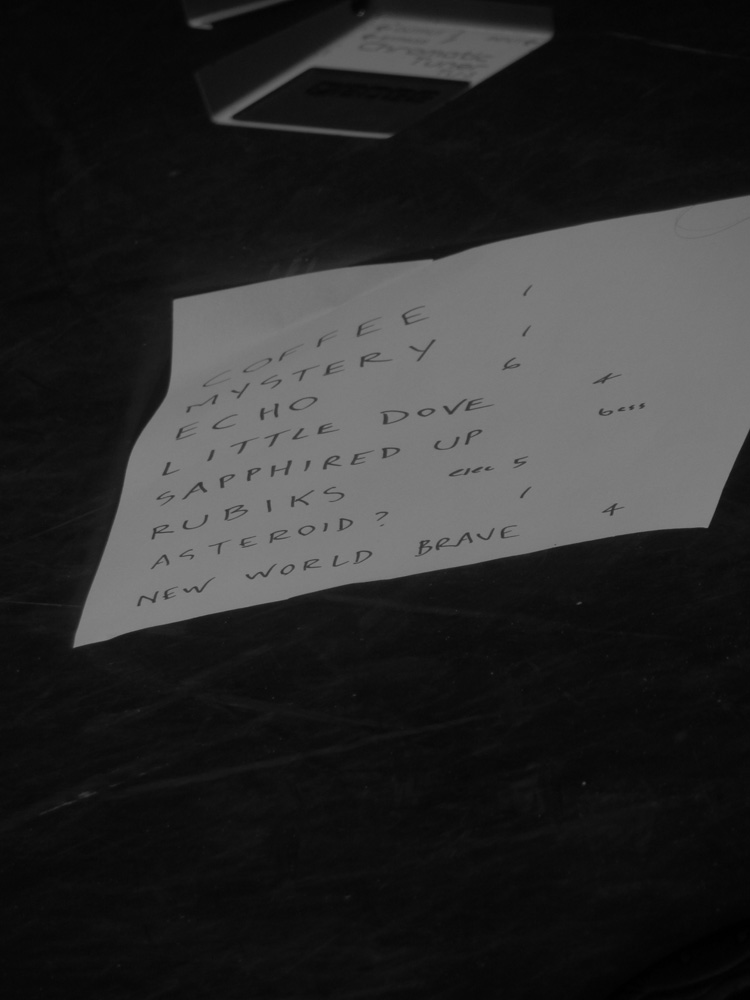 Chromatic
Tuner
COFFEE 1
MYSTERY 1
ECHO 6
LITTLE DOVE 4
SAPPHIRED UP bass
RUBIKS elec 5
ASTEROID? 1
NEW WORLD BRAVE 4